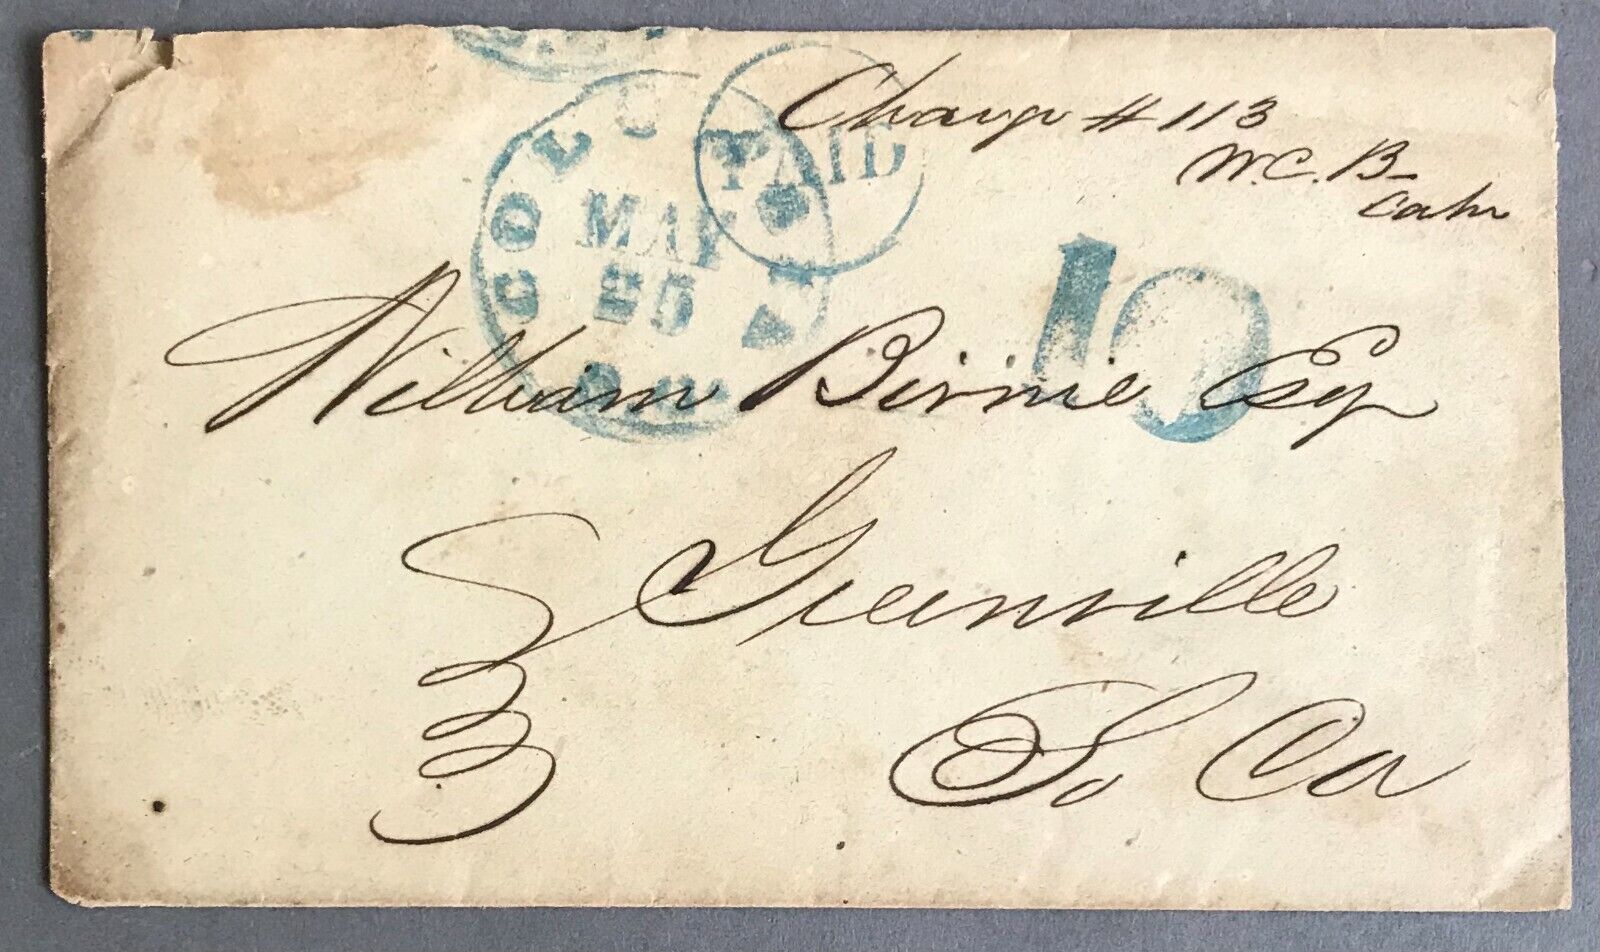 Charge # 113
W.C.B-
Cashr
COLUMBIA
MAY
25
S.C.
PAID
10
William Birnie Esqr
Greenville
So Ca